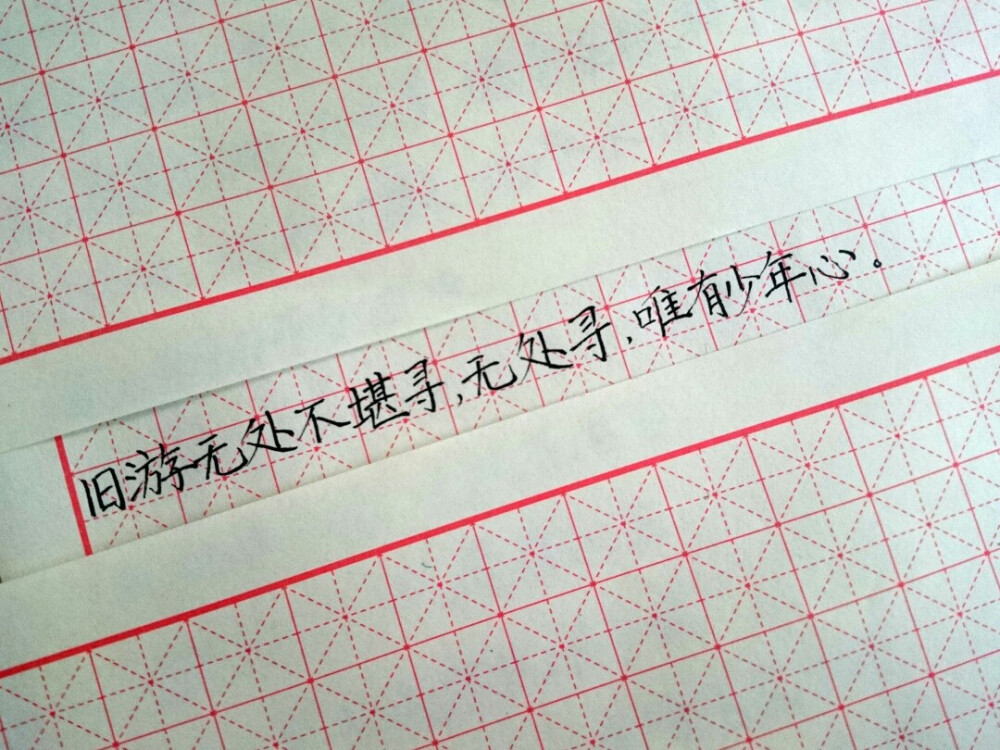 旧游无处不堪寻,无处寻,唯有少年心。